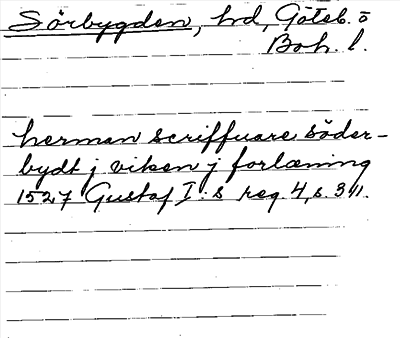 Sörbygden, hd, Göteb. o
Boh. l.
herman scriffuare söder-
bydt j viken j forlæning
1527 Gustaf I:s reg. 4, s. 311.